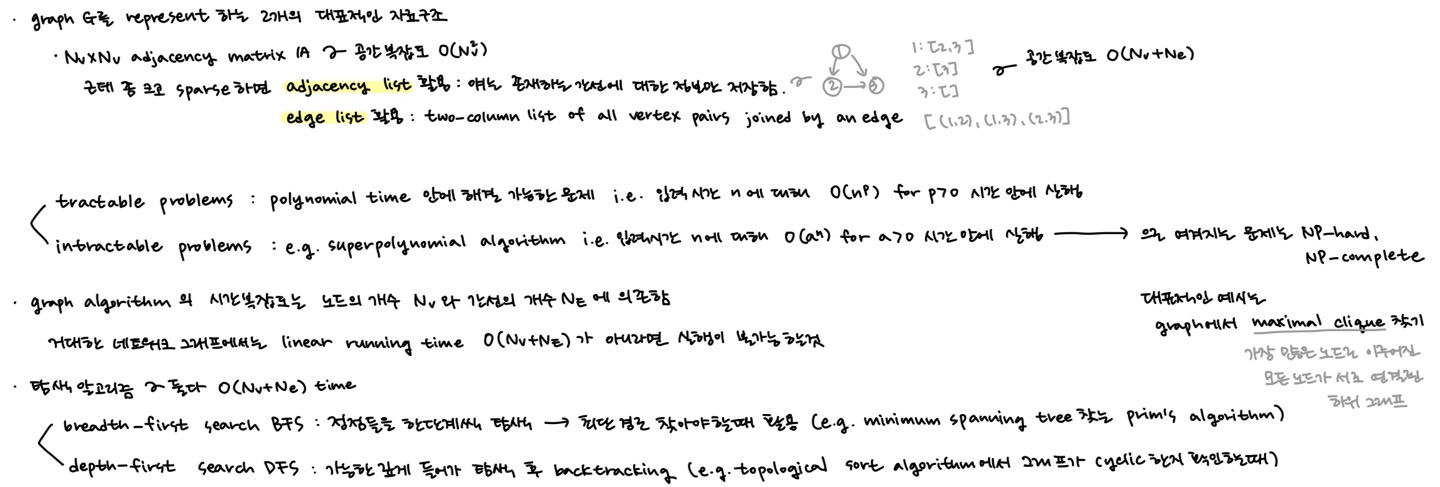 · graph G를 represent 하는 2개의 대표적인 자료구조
· Nv×Nv adjacency matrix A ~ 공간복잡도 O(Nv²)
근데 좀 크고 sparse하면 adjacency list 활용 : 얘는 존재하는 간선에 대한 정보만 저장함. ~ 1 2 → 3 1: [2,3] 2: [3] 3: [] ~ 공간복잡도 O(Nv+Ne)
edge list 활용 : two-column list of all vertex pairs joined by an edge [(1,2), (1,3), (2,3)]
tractable problems : polynomial time 안에 해결 가능한 문제 i.e. 입력시간 n에 대해 O(nᵖ) for p>0 시간 안에 실행
intractable problems : e.g. superpolynomial algorithm i.e. 입력시간 n에 대해 O(aⁿ) for a>0 시간 안에 실행 → 으로 여겨지는 문제는 NP-hard,
NP-complete
대표적인 예시는
graph에서 maximal clique 찾기
가장 많은 노드로 이루어진
모든 노드가 서로 연결된
하위 그래프
· graph algorithm의 시간복잡도는 노드의 개수 Nv와 간선의 개수 NE에 의존함
거대한 네트워크 그래프에서는 linear running time O(Nv+NE)가 아니라면 실행이 불가능할것
· 탐색 알고리즘 ~ 둘다 O(Nv+Ne) time
breadth-first search BFS : 정점들을 한단계씩 탐색 → 최단 경로 찾아야할때 활용 (e.g. minimum spanning tree 찾는 prim's algorithm)
depth-first search DFS : 가능한 깊게 들어가 탐색 후 backtracking (e.g. topological sort algorithm에서 그래프가 cyclic한지 확인할때)